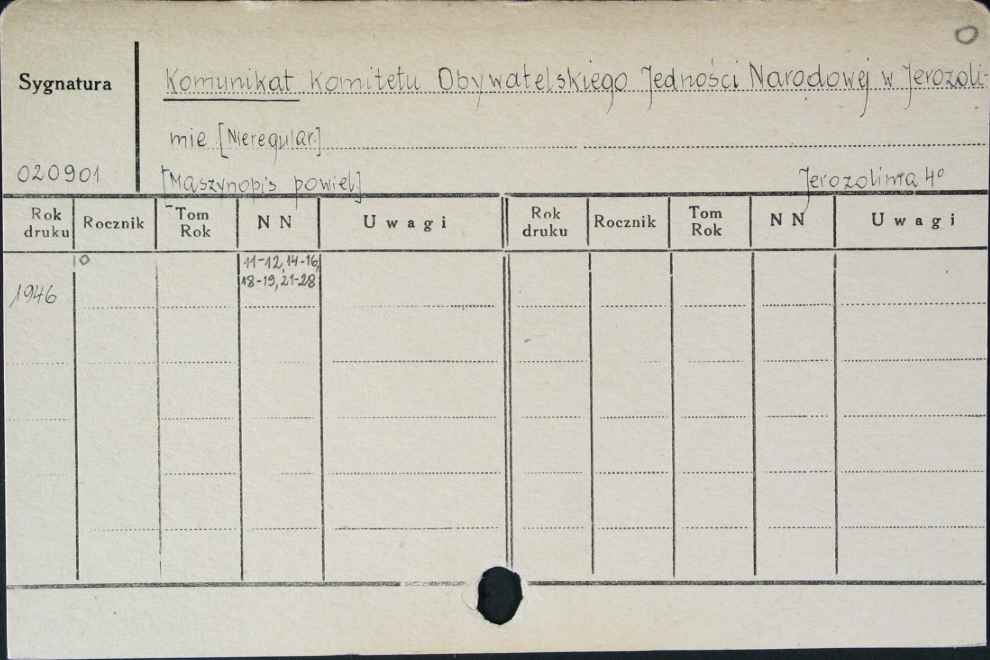 Sygnatura
Komunikat Komitetu Obywatelskiego Jedności Narodowej w Jerozoli-
mie [Nieregular.]
020901
[Maszynopis powiel]
Jerozolima 4°
Rok druku Rocznik Tom Rok NN Uwagi Rok druku Rocznik Tom Rok NN Uwagi
11-12, 14-16,
1946 18-19, 21-28